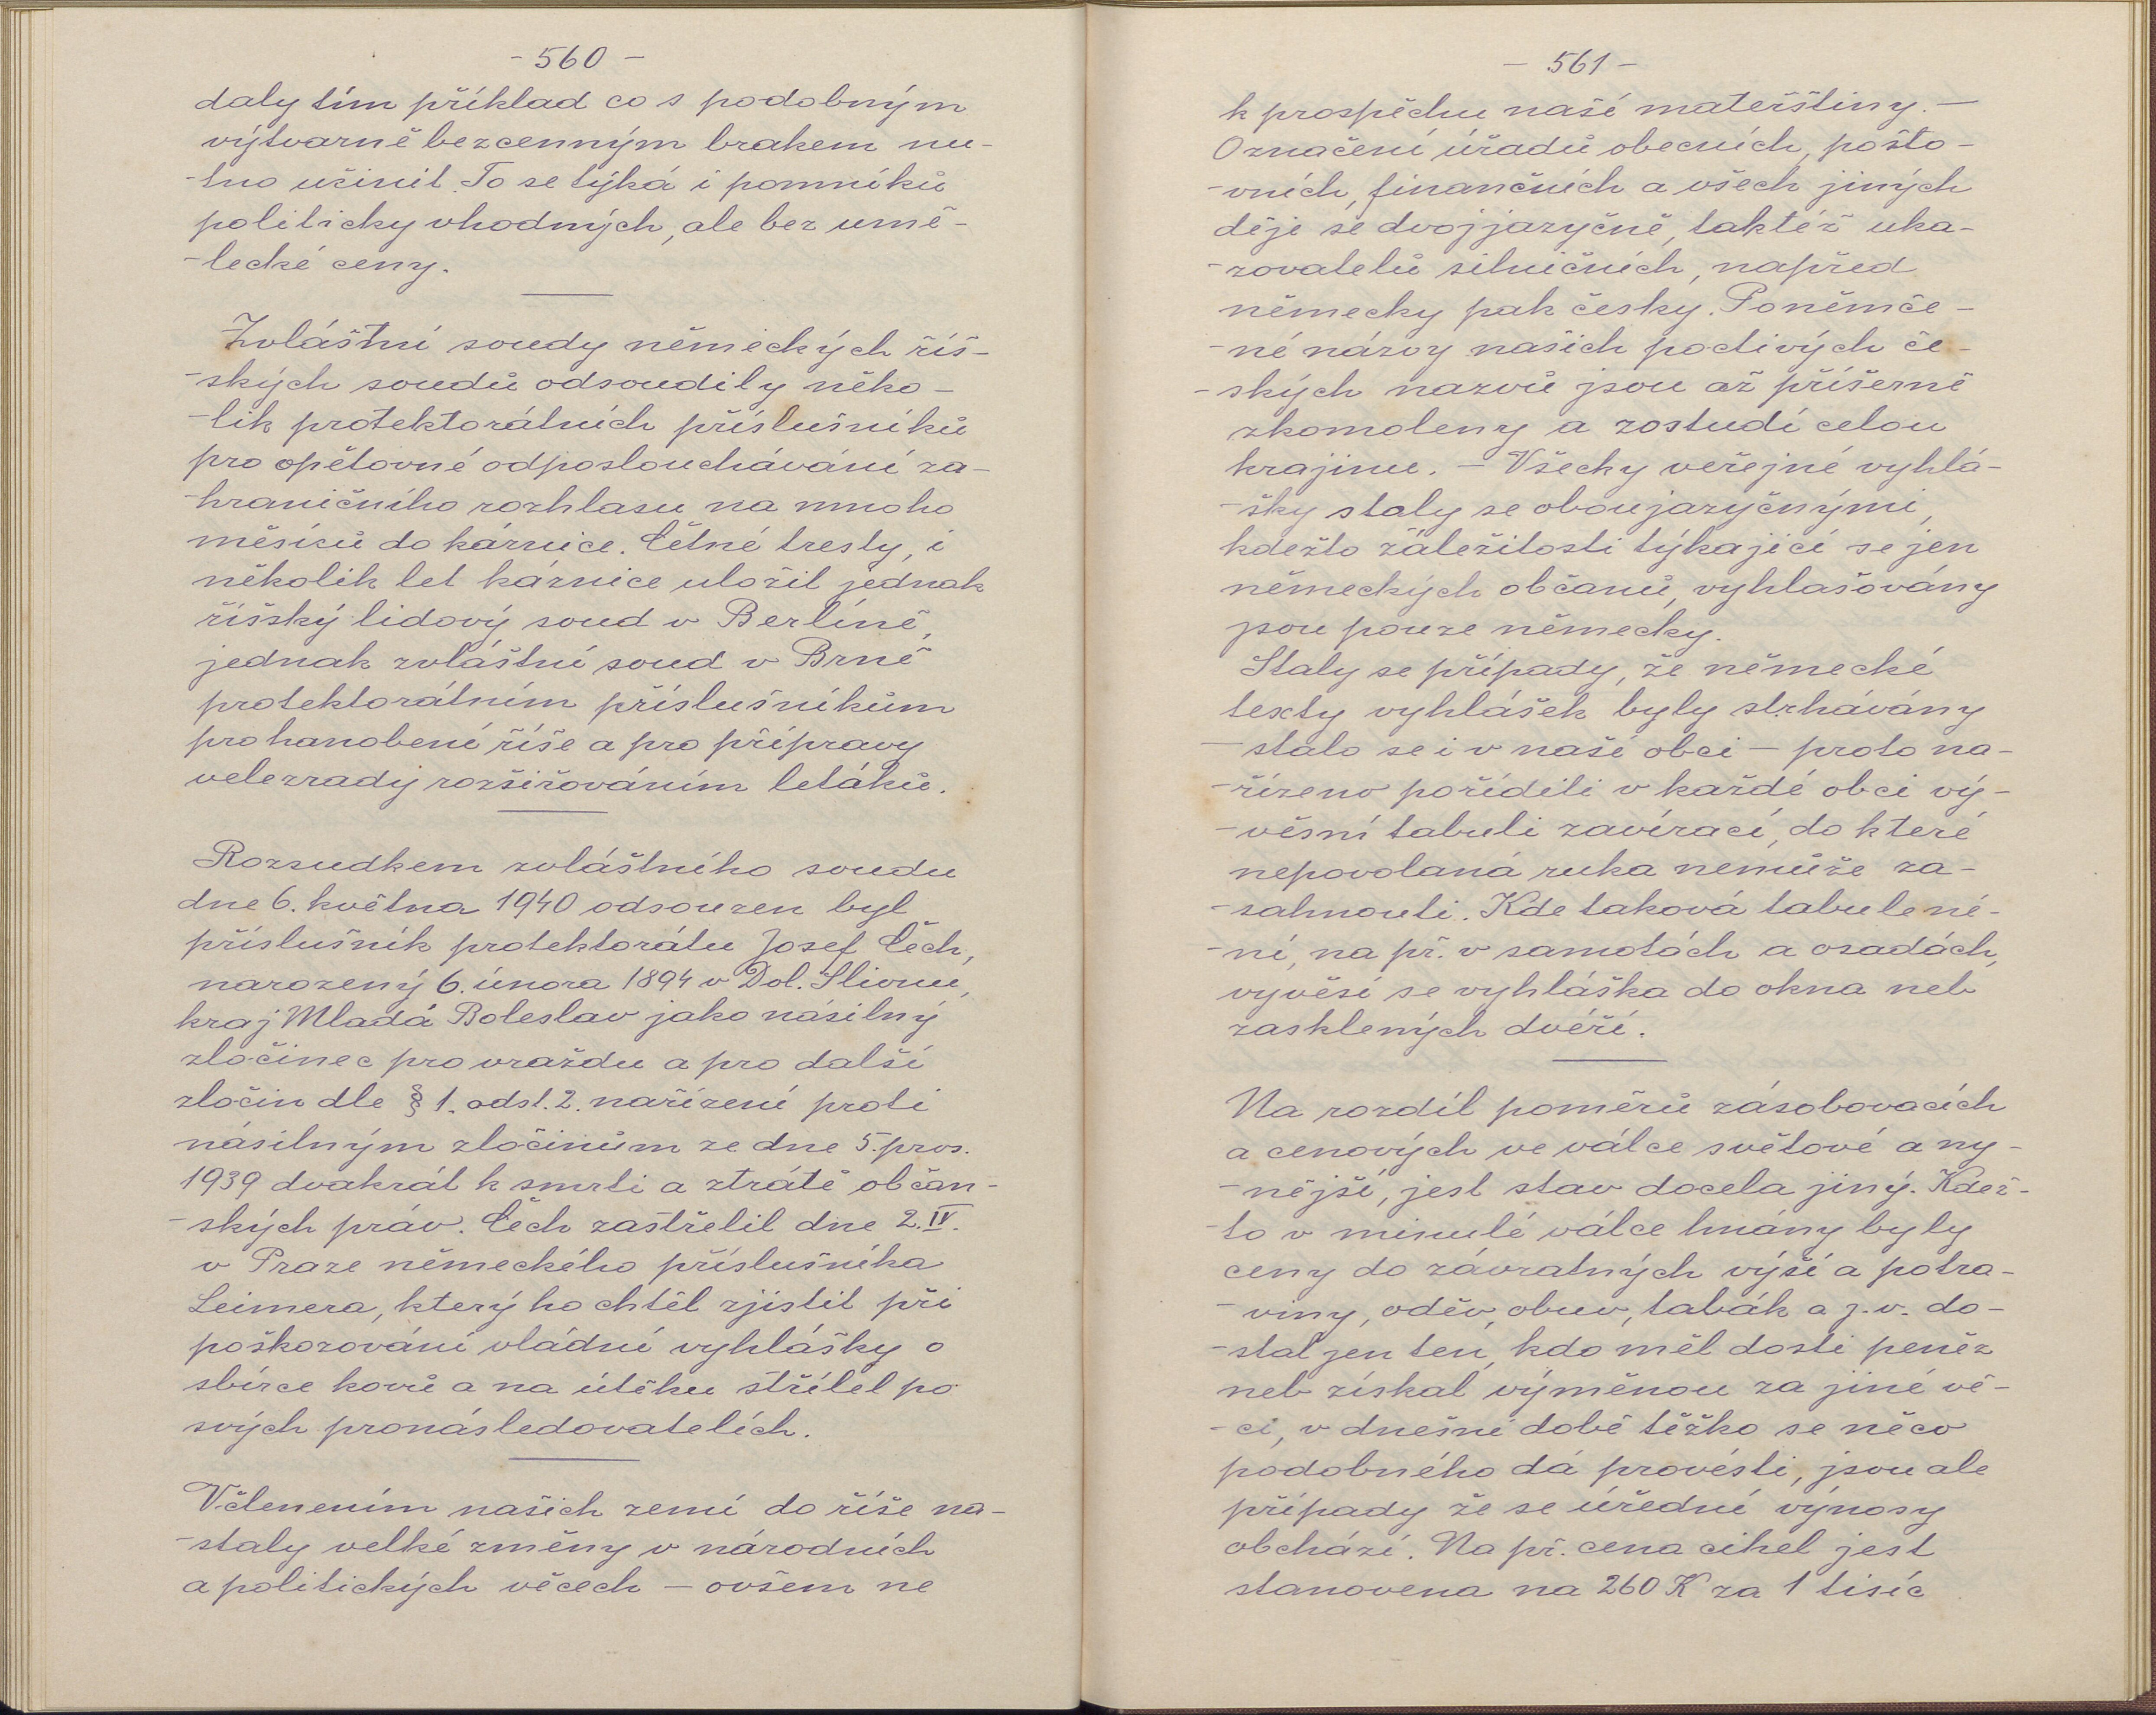 - 560 -
daly tím příklad co s podobným
výtvarně bezcenným brakem nu-
-tno učinit. To se týká i pomníků
politicky vhodných, ale bez umě-
-lecké ceny.
Zvláštní soudy německých říš-
-ských soudů odsoudily něko-
-lik protektorátních příslušníků
pro opětovné odposlouchávání za-
-hraničního rozhlasu na mnoho
měsíců do kárnice. Četné tresty, i
několik let kárnice uložil jednak
říšský lidový soud v Berlíně,
jednak zvláštní soud v Brně
protektorátním příslušníkům
pro hanobení říše a pro přípravy
velezrady rozšiřováním letáků.
Rozsudkem zvláštního soudu
dne 6. května 1940 odsouzen byl
příslušník protektorátu Josef Čěch,
narozený 6. února 1894 v Dol. Slivnu,
kraj Mladá Boleslav jako násilný
zločinec pro vraždu a pro další
zločin dle § 1. odst. 2. nařízení proti
násilným zločinům ze dne 5. pros.
1939 dvakrát k smrti a ztrátě občan-
-ských práv. Čěch zastřelil dne 2. IV.
v Praze německého příslušníka
Leimera, který ho chtěl zjistit při
poškozování vládní vyhlášky o
sbírce kovů a na útěku střílel po
svých pronásledovatelích.
Včlenením našich zemí do říše na-
-staly velké změny v národních
a politických věcech — ovšem ne
- 561 -
k prospěchu naší mateřštiny. —
Označení úřadů obecních, pošto-
-vních, finančních a všech jiných
děje se dvojjazyčně, taktéž uka-
-zovatelů silničních, napřed
německy pak česky. Poněmče-
-né názvy našich poctivých če-
-ských nazvů jsou až příšerně
zkomoleny a zostudí celou
krajinu. — Všecky veřejné vyhlá-
-šky staly se oboujazyčnými,
kdežto záležitosti týkající se jen
německých občanů, vyhlašovány
jsou pouze německy.
Staly se případy, že německé
texty vyhlášek byly strhávány
— stalo se i v naší obci — proto na-
-řízeno poříditi v každé obci vý-
-věsní tabuli zavírací, do které
nepovolaná ruka nemůže za-
-sahnouti. Kde taková tabule ne-
-ní, na př. v samotách a osadách,
vyvěsí se vyhláška do okna neb
zasklených dvéří.
Na rozdíl poměrů zásobovacích
a cenových ve válce světové a ny-
-nější, jest stav docela jiný. Kdež-
-to v minulé válce hnány byly
ceny do závratných výší a potra-
-viny, oděv, obuv, tabák a j. v. do-
-stal jen ten, kdo měl dosti peněz
neb získal výměnou za jiné vě-
-ci, v dnešní době těžko se něco
podobného dá provésti, jsou ale
případy že se úřední výnosy
obchází. Na př. cena cihel jest
stanovena na 260 K za 1 tisíc